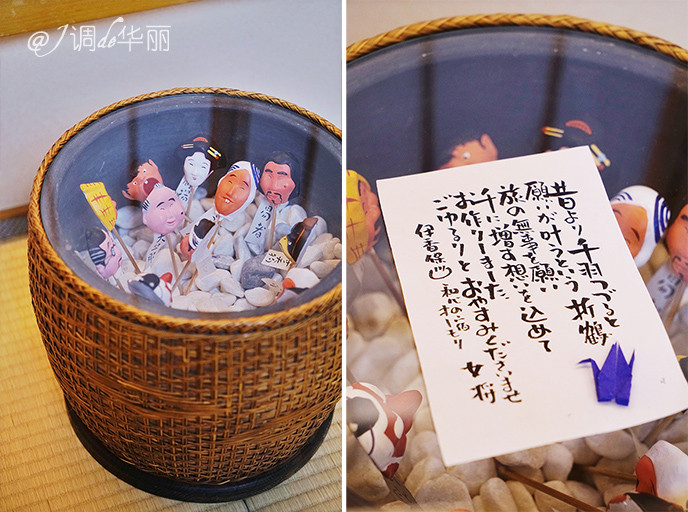 @J调de华丽
昔より千羽つづると
願いが叶うという折鶴
旅の無事を願い
千に増す想いを込めて
お作りしました
ごゆるりとおやすみくださいませ
伊香保 和心の宿オーモリ
女将